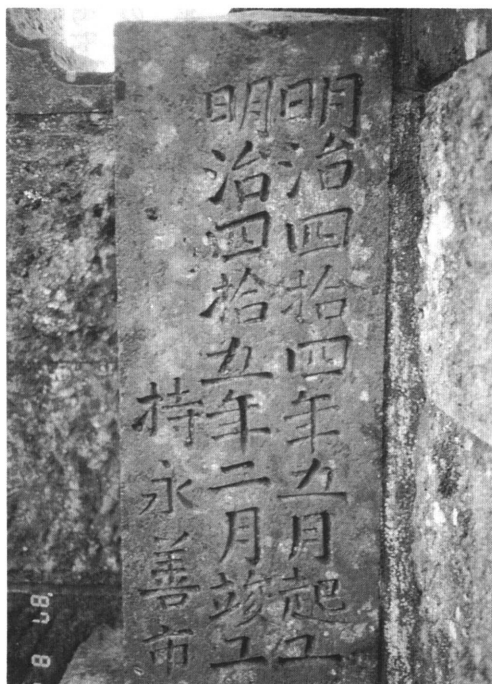 明治四拾四年五月起工
明治四拾五年二月竣工
持永善市